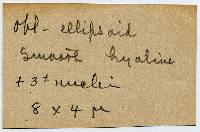 obl - ellipsoid
smooth hyaline
+ 3± nuclei
8 x 4 µ